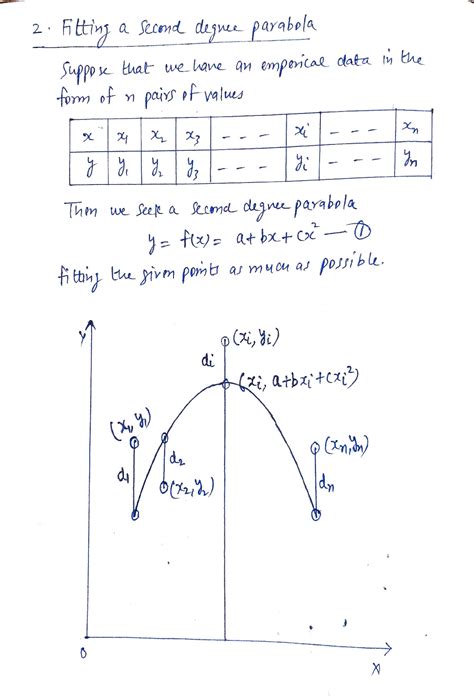 2. Fitting a second degree parabola
Suppose that we have an emperical data in the
form of n pairs of values
x x₁ x₂ x₃ --- xᵢ --- xₙ
y y₁ y₂ y₃ --- yᵢ --- yₙ
Then we seek a second degree parabola
y = f(x) = a+bx+cx² — ①
fitting the given points as much as possible.
Y
(xᵢ, yᵢ)
dᵢ
(xᵢ, a+bxᵢ+cxᵢ²)
(x₁, y₁)
d₁
d₂
(x₂, y₂)
(xₙ, yₙ)
dₙ
0
X